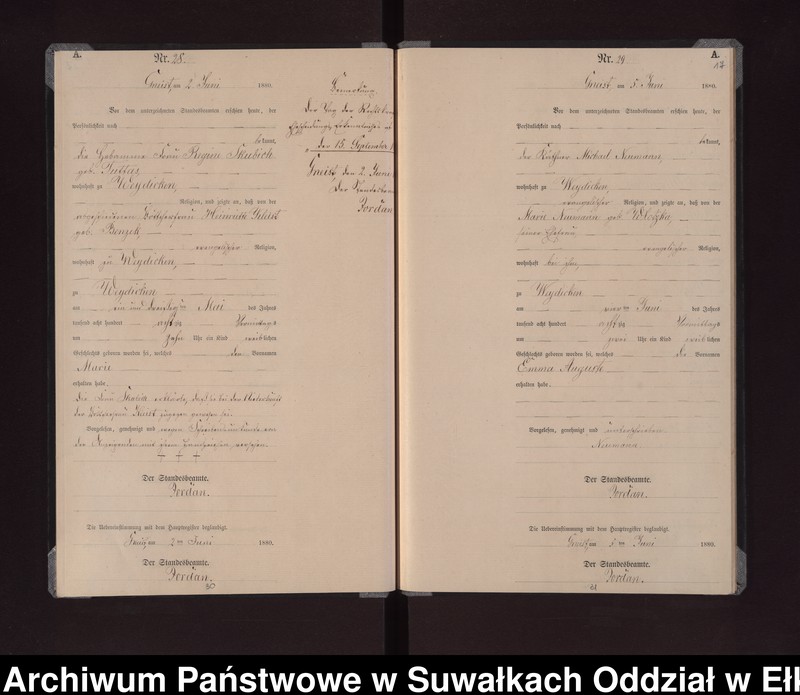 A.
Nr. 28.
Gneist, am 2. Juni 1880.
Vor dem unterzeichneten Standesbeamten erschien heute, der
Persönlichkeit nach
bekannt,
die Hebamme Frau Regine
geb.
wohnhaft zu Weydicken,
Religion, und zeigte an, daß von der
geb.
evangelischer Religion,
wohnhaft zu Weydicken,
zu Weydicken
am ein und dreißigten Mai des Jahres
tausend acht hundert achtzig Vormittags
um Uhr ein Kind weiblichen
Geschlechts geboren worden sei, welches den Vornamen
Marie
erhalten habe.
Die Frau erklärte, daß sie bei der Niederkunft
der zugegen gewesen sei.
Vorgelesen, genehmigt und wegen Schreibensunkunde von
der Anzeigenden mit ihrem Handzeichen versehen
+ + +
Der Standesbeamte.
Jordan.
Die Uebereinstimmung mit dem Hauptregister beglaubigt.
Gneist, am 2ten Juni 1880.
Der Standesbeamte.
Jordan.
30
Bemerkung.
Der Tag der
der 15. September
Gneist, den 2. Juni
Der
Jordan
A.
Nr. 29
Gneist am 5. Juni 1880.
Vor dem unterzeichneten Standesbeamten erschien heute, der
Persönlichkeit nach
bekannt,
der Michael Neumann,
wohnhaft zu Weydicken,
evangelischer Religion, und zeigte an, daß von der
Marie Neumann geb.
seiner Ehefrau
evangelischer Religion,
wohnhaft bei ihm,
zu Weydicken
am vierten Juni des Jahres
tausend acht hundert achtzig Vormittags
um Uhr ein Kind weiblichen
Geschlechts geboren worden sei, welches die Vornamen
Emma Auguste
erhalten habe.
Vorgelesen, genehmigt und unterschrieben
Neumann
Der Standesbeamte.
Jordan.
Die Uebereinstimmung mit dem Hauptregister beglaubigt.
Gneist am 5ten Juni 1880.
Der Standesbeamte.
Jordan.
Archiwum Państwowe w Suwałkach Oddział w Eł